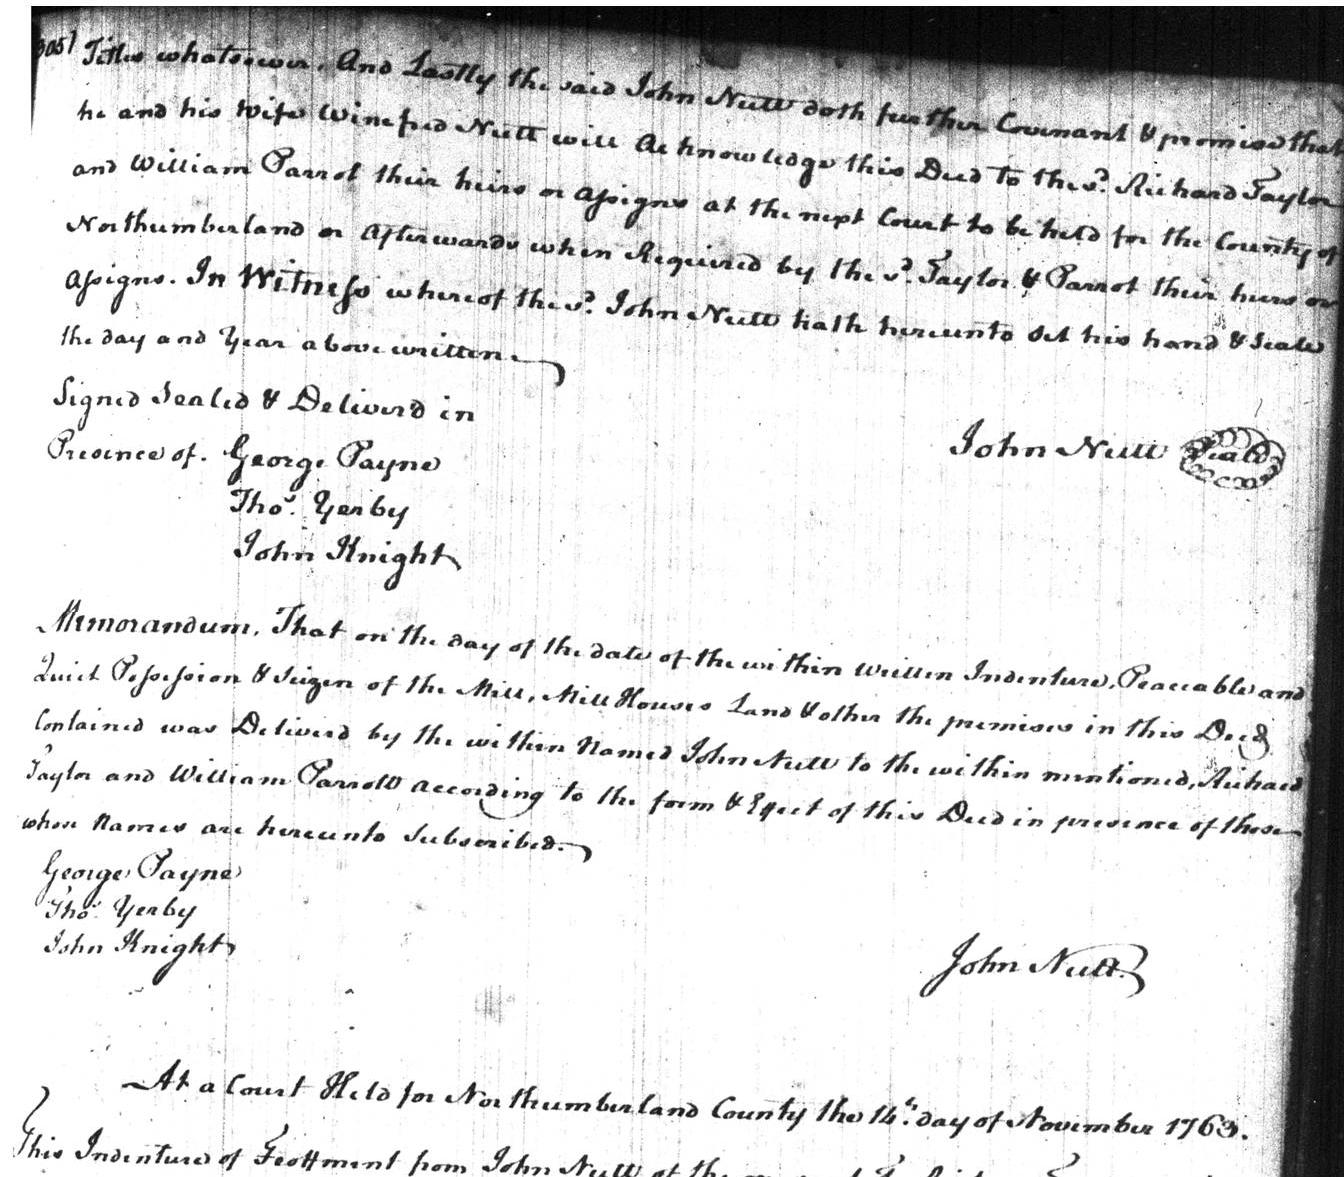 305)
Titles whatsoever. And Lastly the said John Nutt doth further Covenant & promise that
he and his Wife Winefred Nutt will Acknowledge this Deed To the sd. Richard Taylor
and William Parrot their heirs or assigns at the next Court to be held for the County of
Northumberland or afterwards when Required by the sd. Taylor & Parrot their heirs or
assigns. In Witness whereof the sd. John Nutt hath hereunto Set his hand & Seale
the day and Year above written.
Signed Sealed & Deliverd in
Presence of. George Payne
John Nutt Seale
Thos. Yerby
John Knight
Memorandum, That on the day of the date of the within written Indenture, Peaceable and
Quiet Possession & Seizen of the Mill, Mill Houses Land & other the premises in this Deed
Contained was Deliverd by the within Named John Nutt to the within mentioned, Richard
Taylor and William Parrott according to the form & Effect of this Deed in presence of those
whose Names are hereunto Subscribed.
George Payne
Thos. Yerby
John Knight
John Nutt.
At a Court Held for Northumberland County the 14th. day of November 1763.
This Indenture of Feoffment from John Nutt of the